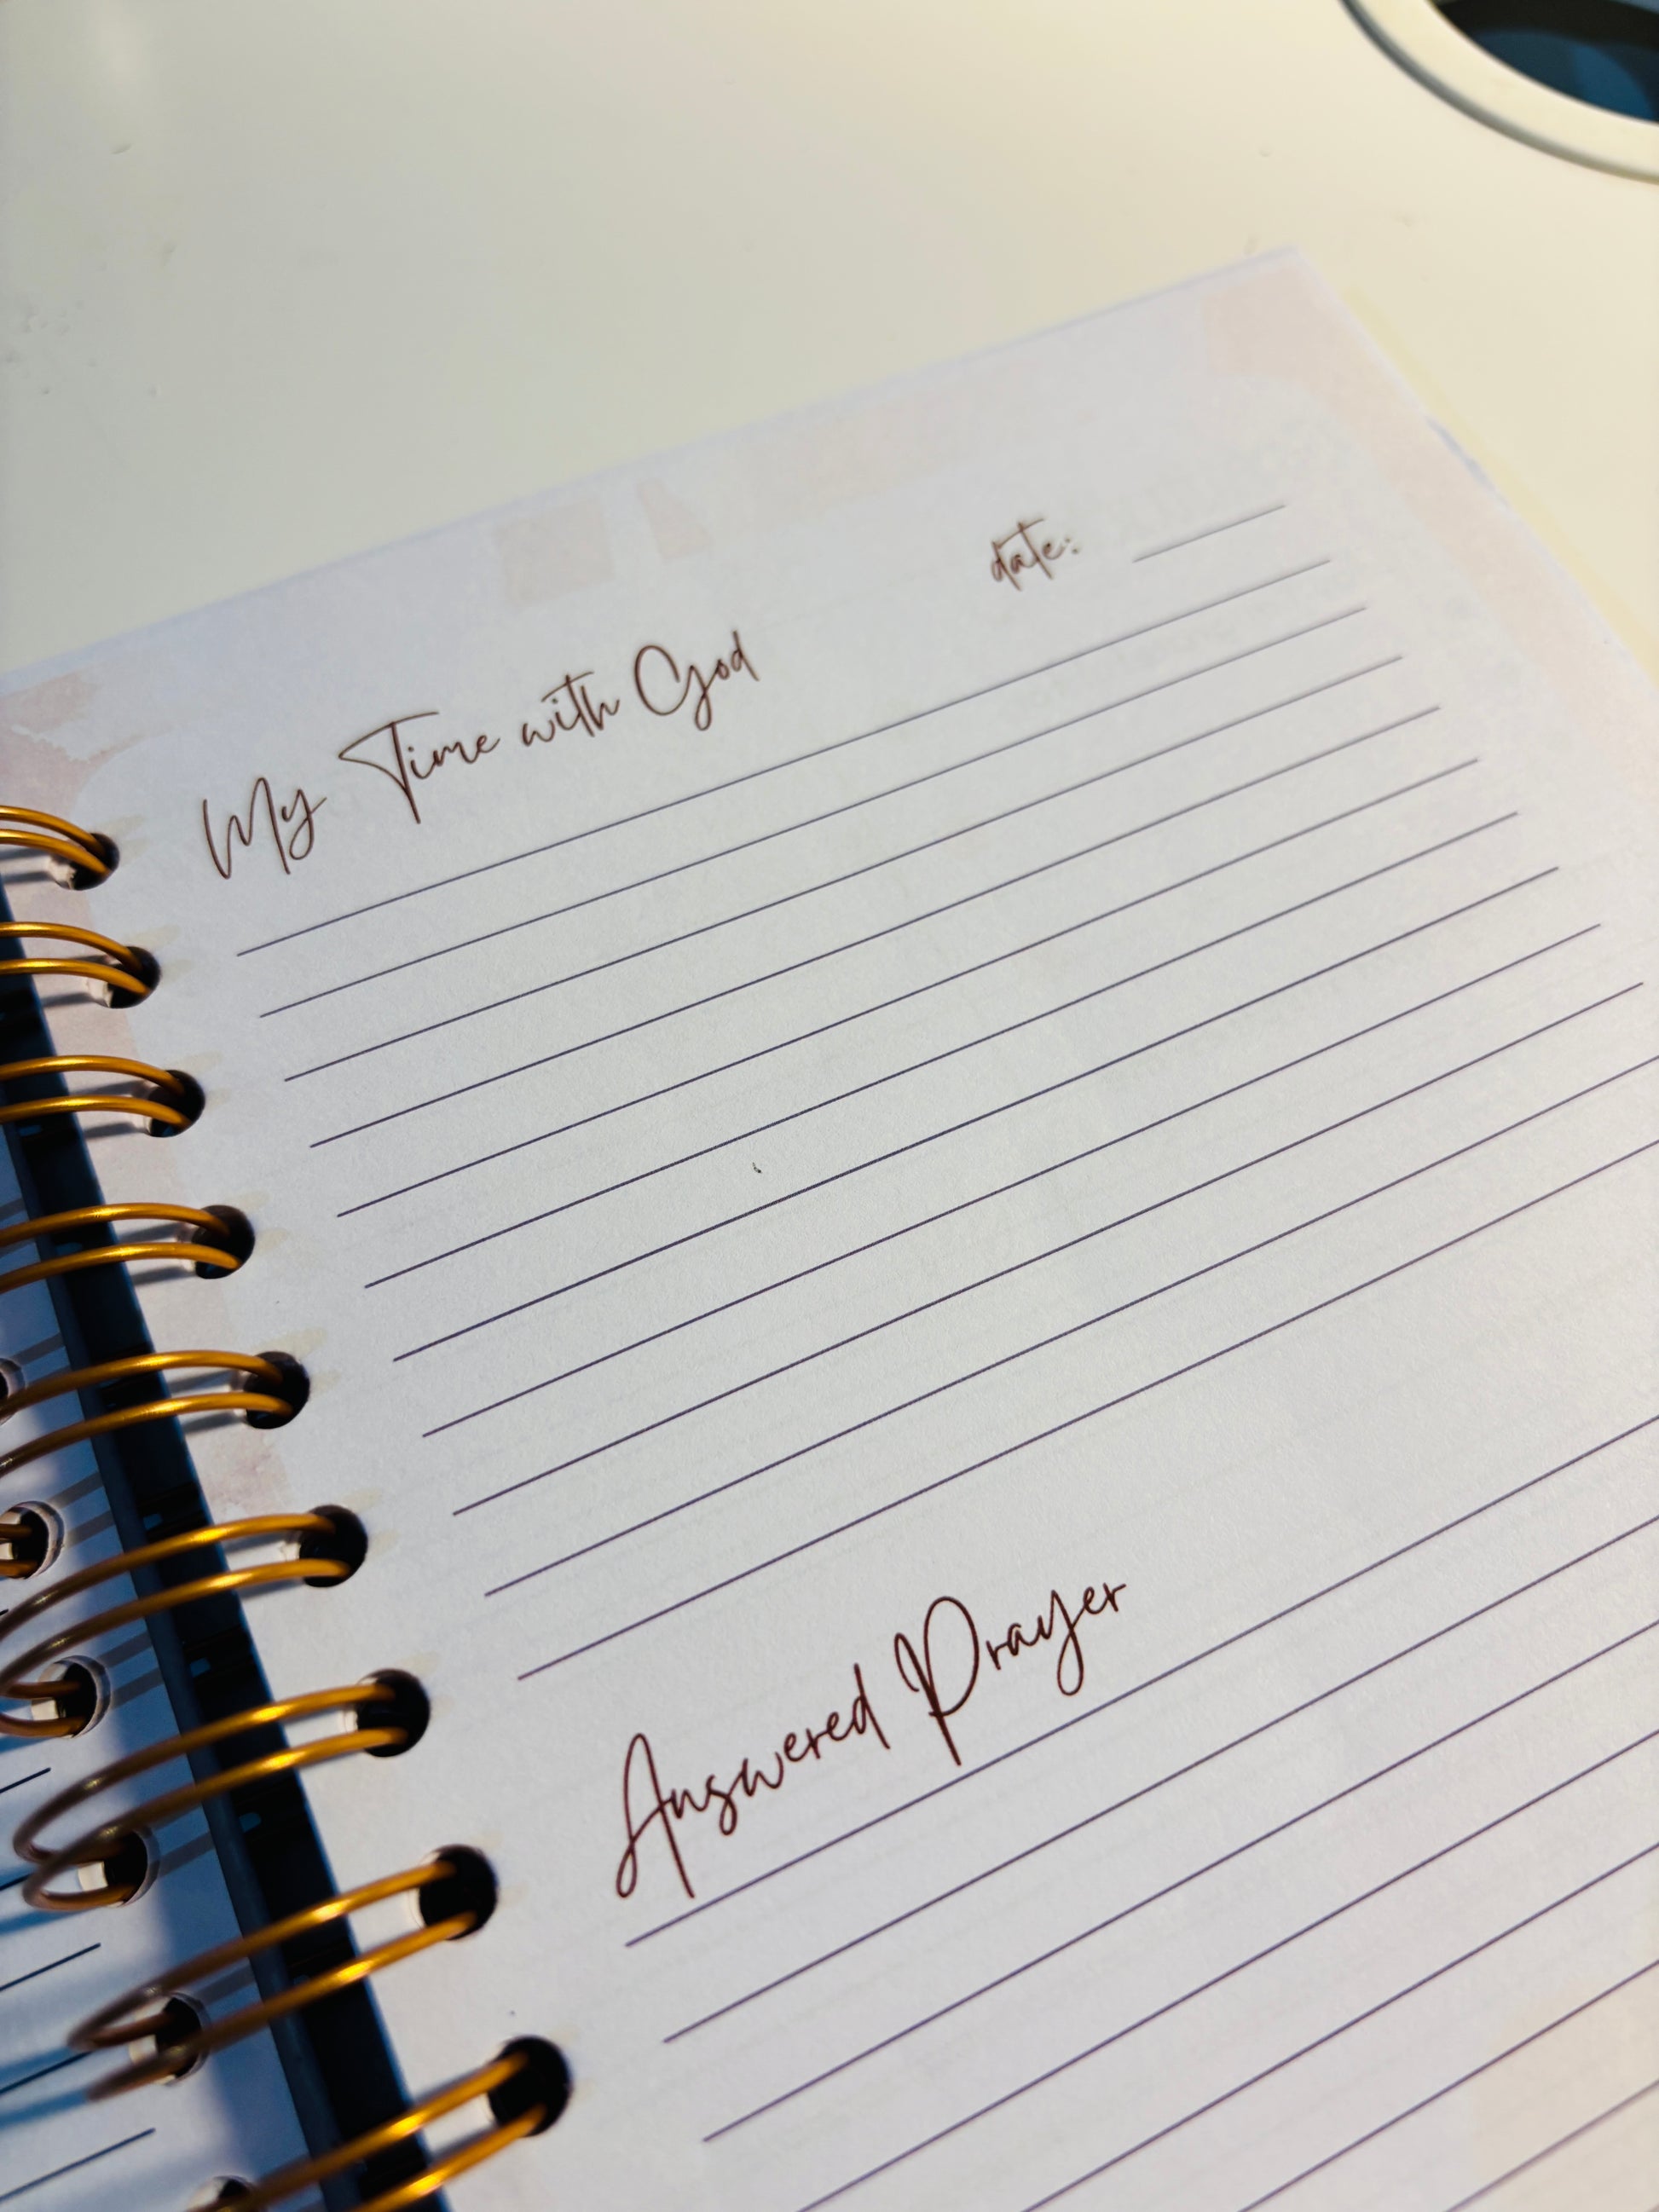 date:
My Time with God
Answered Prayer